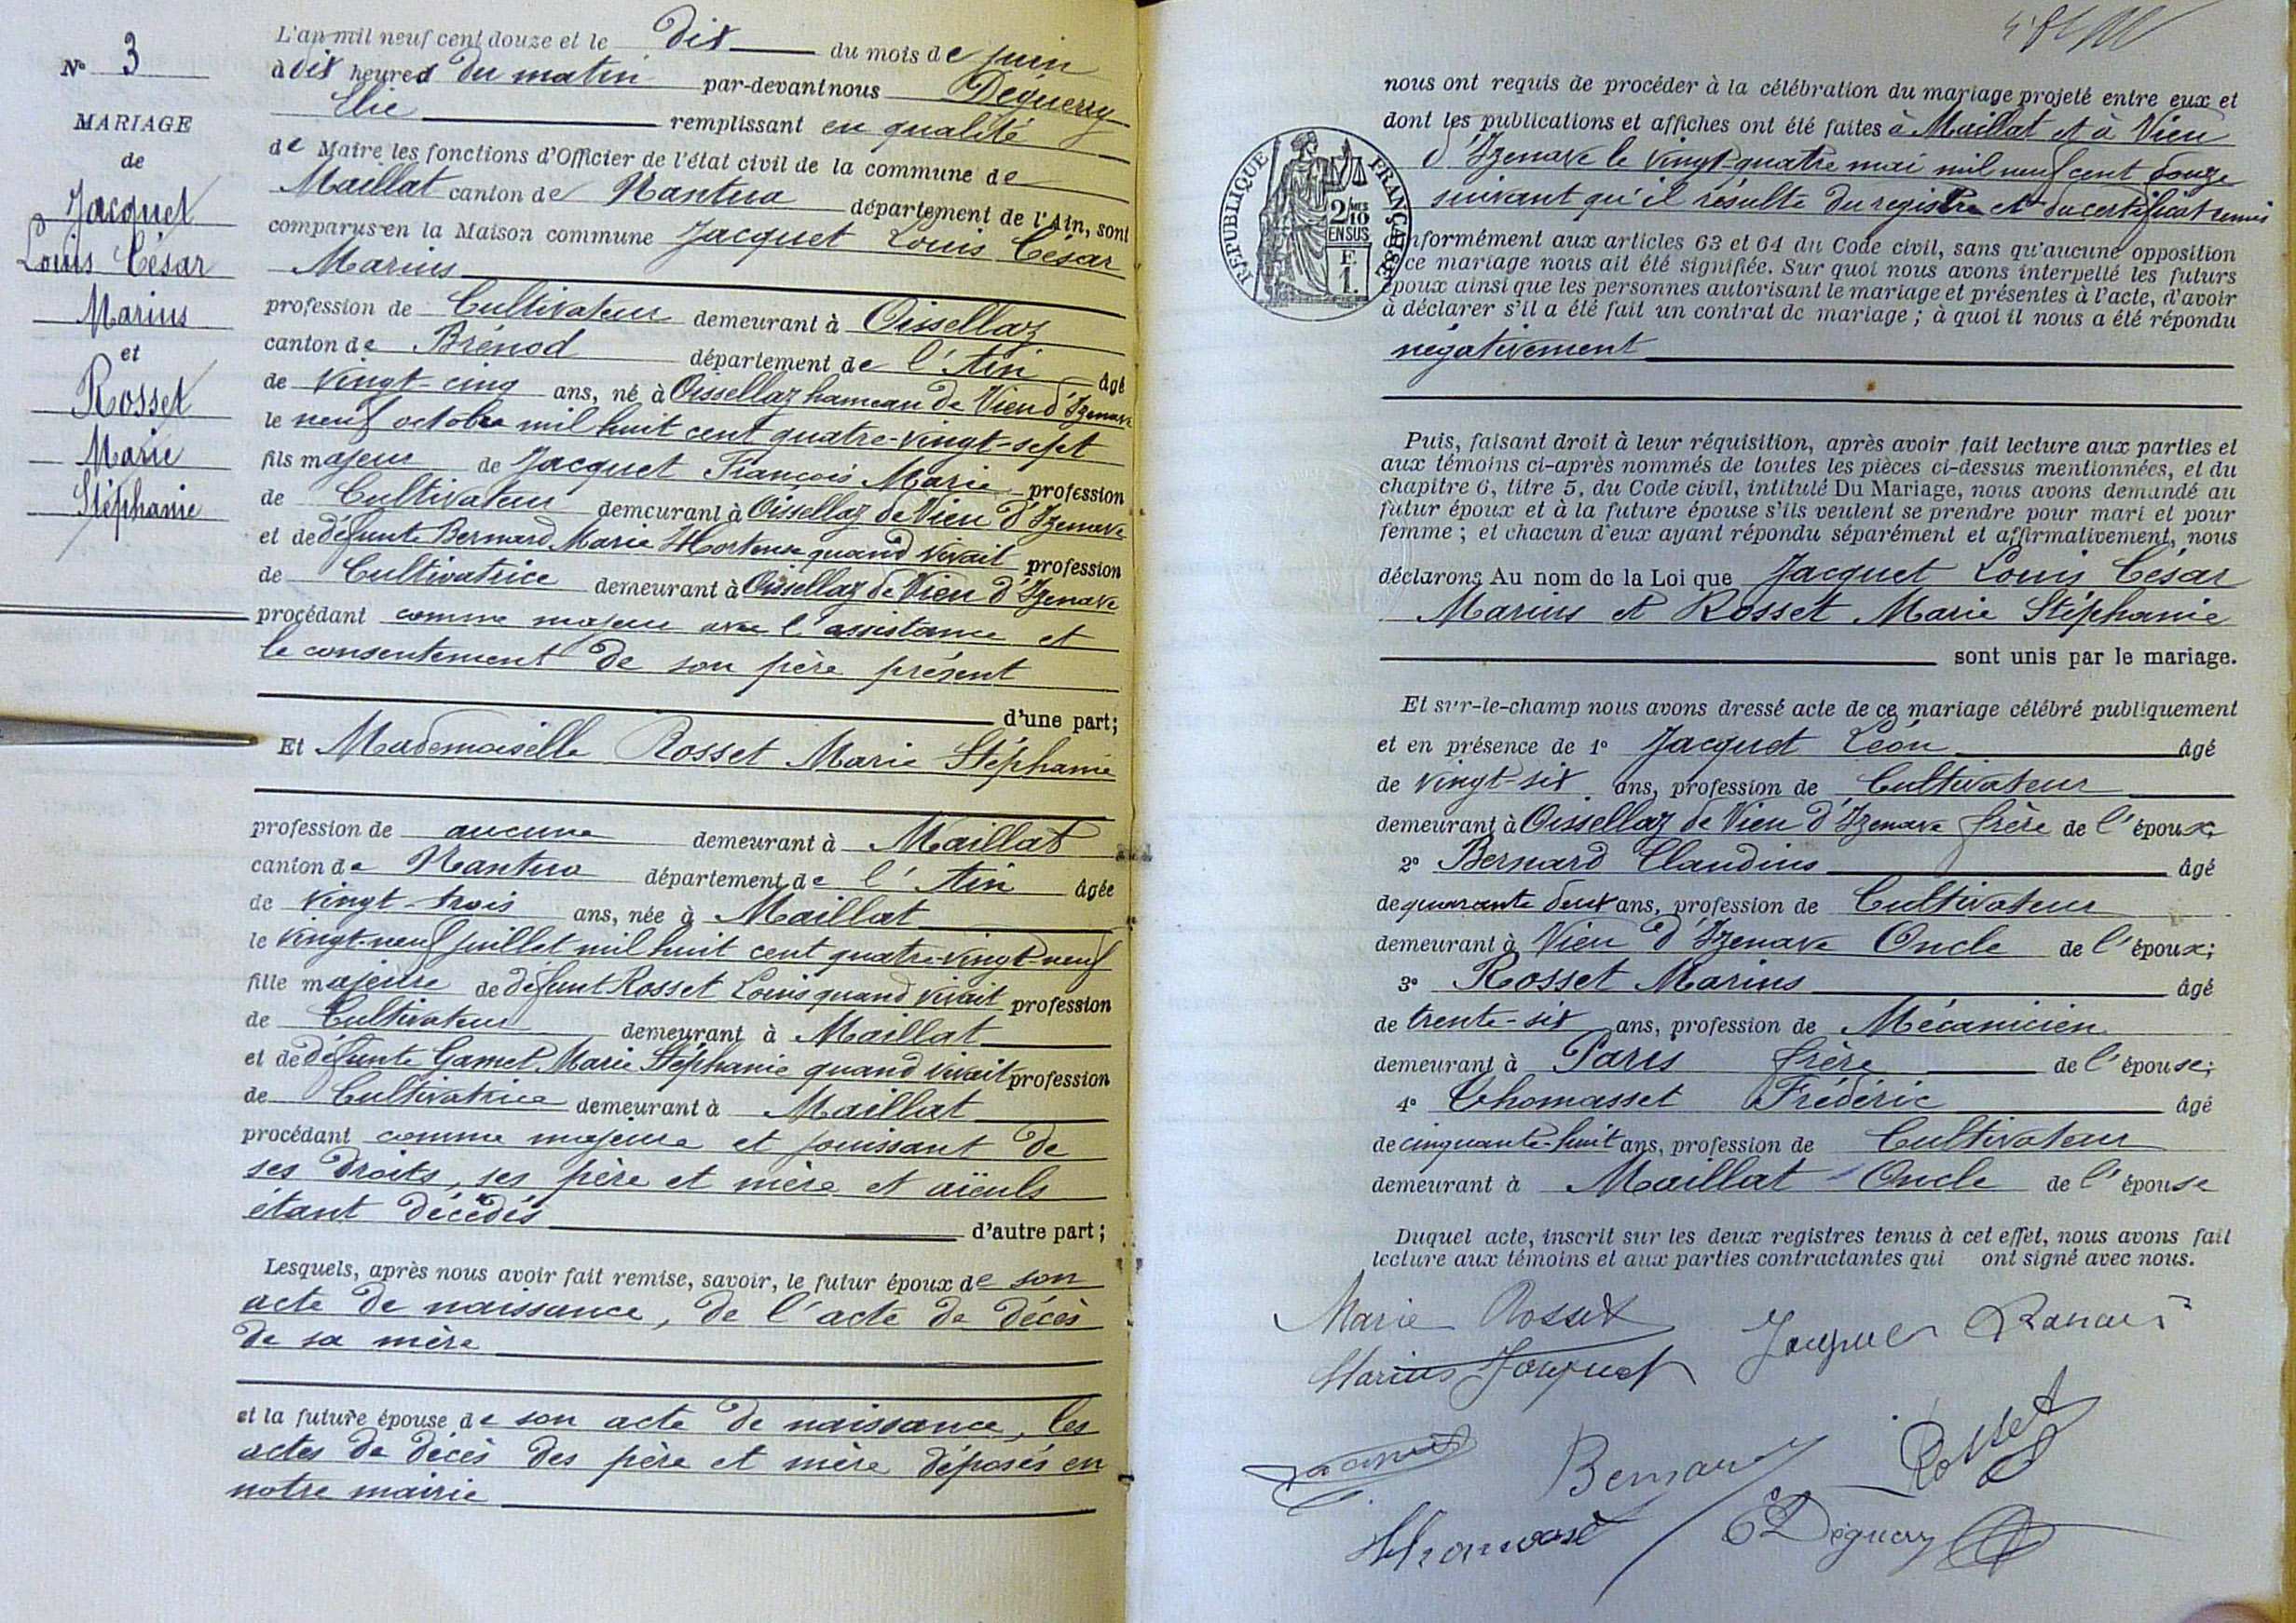 N° 3
MARIAGE
de
Jacquet
Louis César
Marius
et
Rosset
Marie
Stéphanie
L'an mil neuf cent douze et le dix du mois de juin
à dix heures du matin par-devant nous Déguerry
Elie remplissant en qualité
de Maire les fonctions d'Officier de l'état civil de la commune de
Maillat canton de Nantua département de l'Ain, sont
comparus en la Maison commune Jacquet Louis César
Marius
profession de Cultivateur demeurant à Oissellaz
canton de Brénod département de l'Ain âgé
de vingt-cinq ans, né à Oissellaz hameau de Vieu d'Izenave
le neuf octobre mil huit cent quatre-vingt-sept
fils majeur de Jacquet François Marie profession
de Cultivateur demeurant à Oissellaz de Vieu d'Izenave
et de défunte Bernard Marie Hortense quand vivait profession
de Cultivatrice demeurant à Oissellaz de Vieu d'Izenave
procédant comme majeur avec l'assistance et
le consentement de son père présent
d'une part;
Et Mademoiselle Rosset Marie Stéphanie
profession de aucune demeurant à Maillat
canton de Nantua département de l'Ain âgée
de vingt-trois ans, née à Maillat
le vingt-neuf juillet mil huit cent quatre-vingt-neuf
fille majeure de défunt Rosset Louis quand vivait profession
de Cultivateur demeurant à Maillat
et de défunte Gamet Marie Stéphanie quand vivait profession
de Cultivatrice demeurant à Maillat
procédant comme majeure et jouissant de
ses droits, ses père et mère et aïeuls
étant décédés d'autre part;
Lesquels, après nous avoir fait remise, savoir, le futur époux de son
acte de naissance, de l'acte de décès
de sa mère
et la future épouse de son acte de naissance, les
actes de décès des père et mère déposés en
notre mairie
nous ont requis de procéder à la célébration du mariage projeté entre eux et
dont les publications et affiches ont été faites à Maillat et à Vieu
d'Izenave le vingt-quatre mai mil neuf cent douze
suivant qu'il résulte du registre et du certificat remis
RÉPUBLIQUE FRANÇAISE
2/10 EN SUS
E
1.
conformément aux articles 63 et 64 du Code civil, sans qu'aucune opposition
ce mariage nous ait été signifiée. Sur quoi nous avons interpellé les futurs
époux ainsi que les personnes autorisant le mariage et présentes à l'acte, d'avoir
à déclarer s'il a été fait un contrat de mariage; à quoi il nous a été répondu
négativement
Puis, faisant droit à leur réquisition, après avoir fait lecture aux parties et
aux témoins ci-après nommés de toutes les pièces ci-dessus mentionnées, et du
chapitre 6, titre 5, du Code civil, intitulé Du Mariage, nous avons demandé au
futur époux et à la future épouse s'ils veulent se prendre pour mari et pour
femme; et chacun d'eux ayant répondu séparément et affirmativement, nous
déclarons Au nom de la Loi que Jacquet Louis César
Marius et Rosset Marie Stéphanie
sont unis par le mariage.
Et sur-le-champ nous avons dressé acte de ce mariage célébré publiquement
et en présence de 1° Jacquet Léon âgé
de vingt-six ans, profession de Cultivateur
demeurant à Oissellaz de Vieu d'Izenave frère de l'époux;
2° Bernard Claudius âgé
de quarante deux ans, profession de Cultivateur
demeurant à Vieu d'Izenave Oncle de l'époux;
3° Rosset Marius âgé
de trente-six ans, profession de Mécanicien
demeurant à Paris frère de l'épouse;
4° Thomasset Frédéric âgé
de cinquante-huit ans, profession de Cultivateur
demeurant à Maillat Oncle de l'épouse
Duquel acte, inscrit sur les deux registres tenus à cet effet, nous avons fait
lecture aux témoins et aux parties contractantes qui ont signé avec nous.
Marie Rosset
Marius Jacquet
Bernard
Rosset
E Déguerry